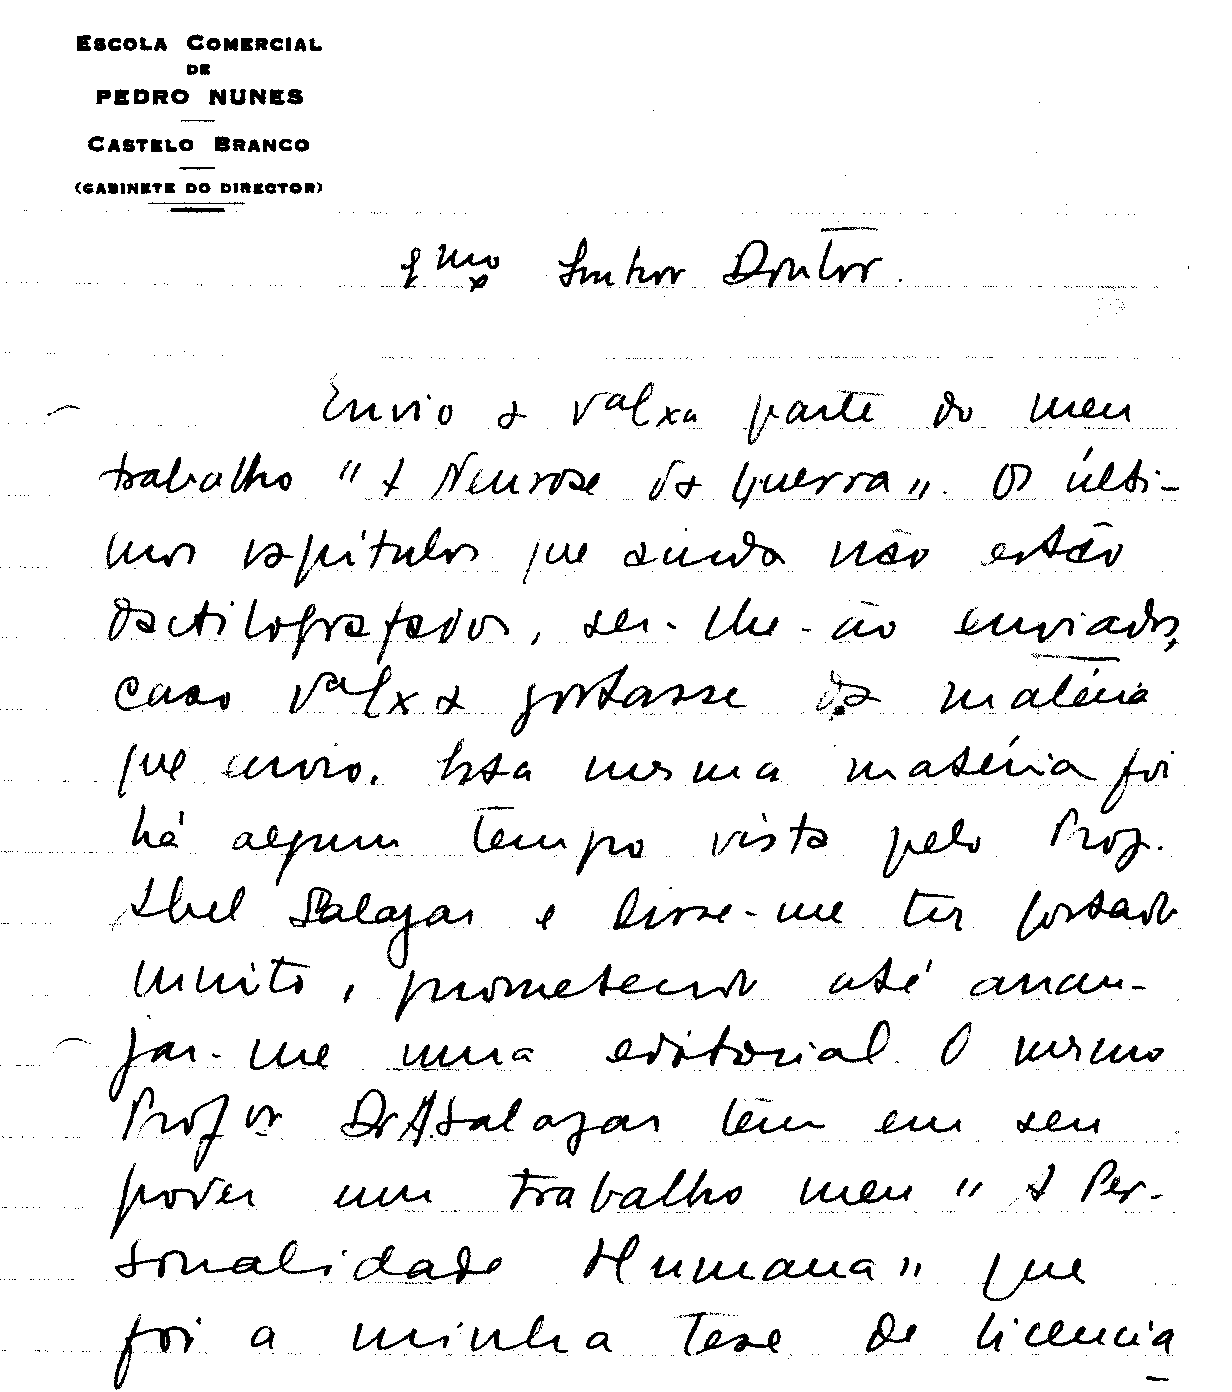 ESCOLA COMERCIAL
DE
PEDRO NUNES
CASTELO BRANCO
(GABINETE DO DIRECTOR)
Exmo Senhor Doutor.
Envio a Valxa parte do meu
trabalho "A Neurose da Guerra". Os últi-
mos capítulos que ainda não estão
dactilografados, ser-lhe-ão enviados,
caso Valxa gostasse da matéria
que envio. Esta mesma matéria foi
há algum tempo vista pelo Prof.
Abel Salazar e disse-me ter gostado
muito, prometendo até arran-
jar-me uma editorial. O mesmo
Profor Dr A Salazar têm em seu
poder um trabalho meu "A Per-
sonalidade Humana" que
foi a minha tese de licencia